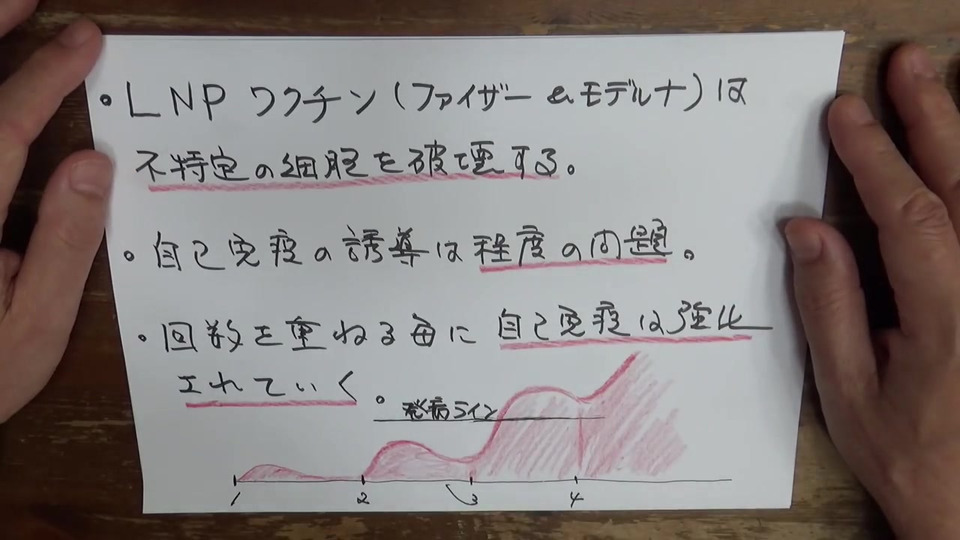 ・LNP ワクチン(ファイザー&モデルナ)は
不特定の細胞を破壊する。
・自己免疫の誘導は程度の問題。
・回数を重ねる毎に 自己免疫は強化
されていく。
発病ライン
1 2 3 4